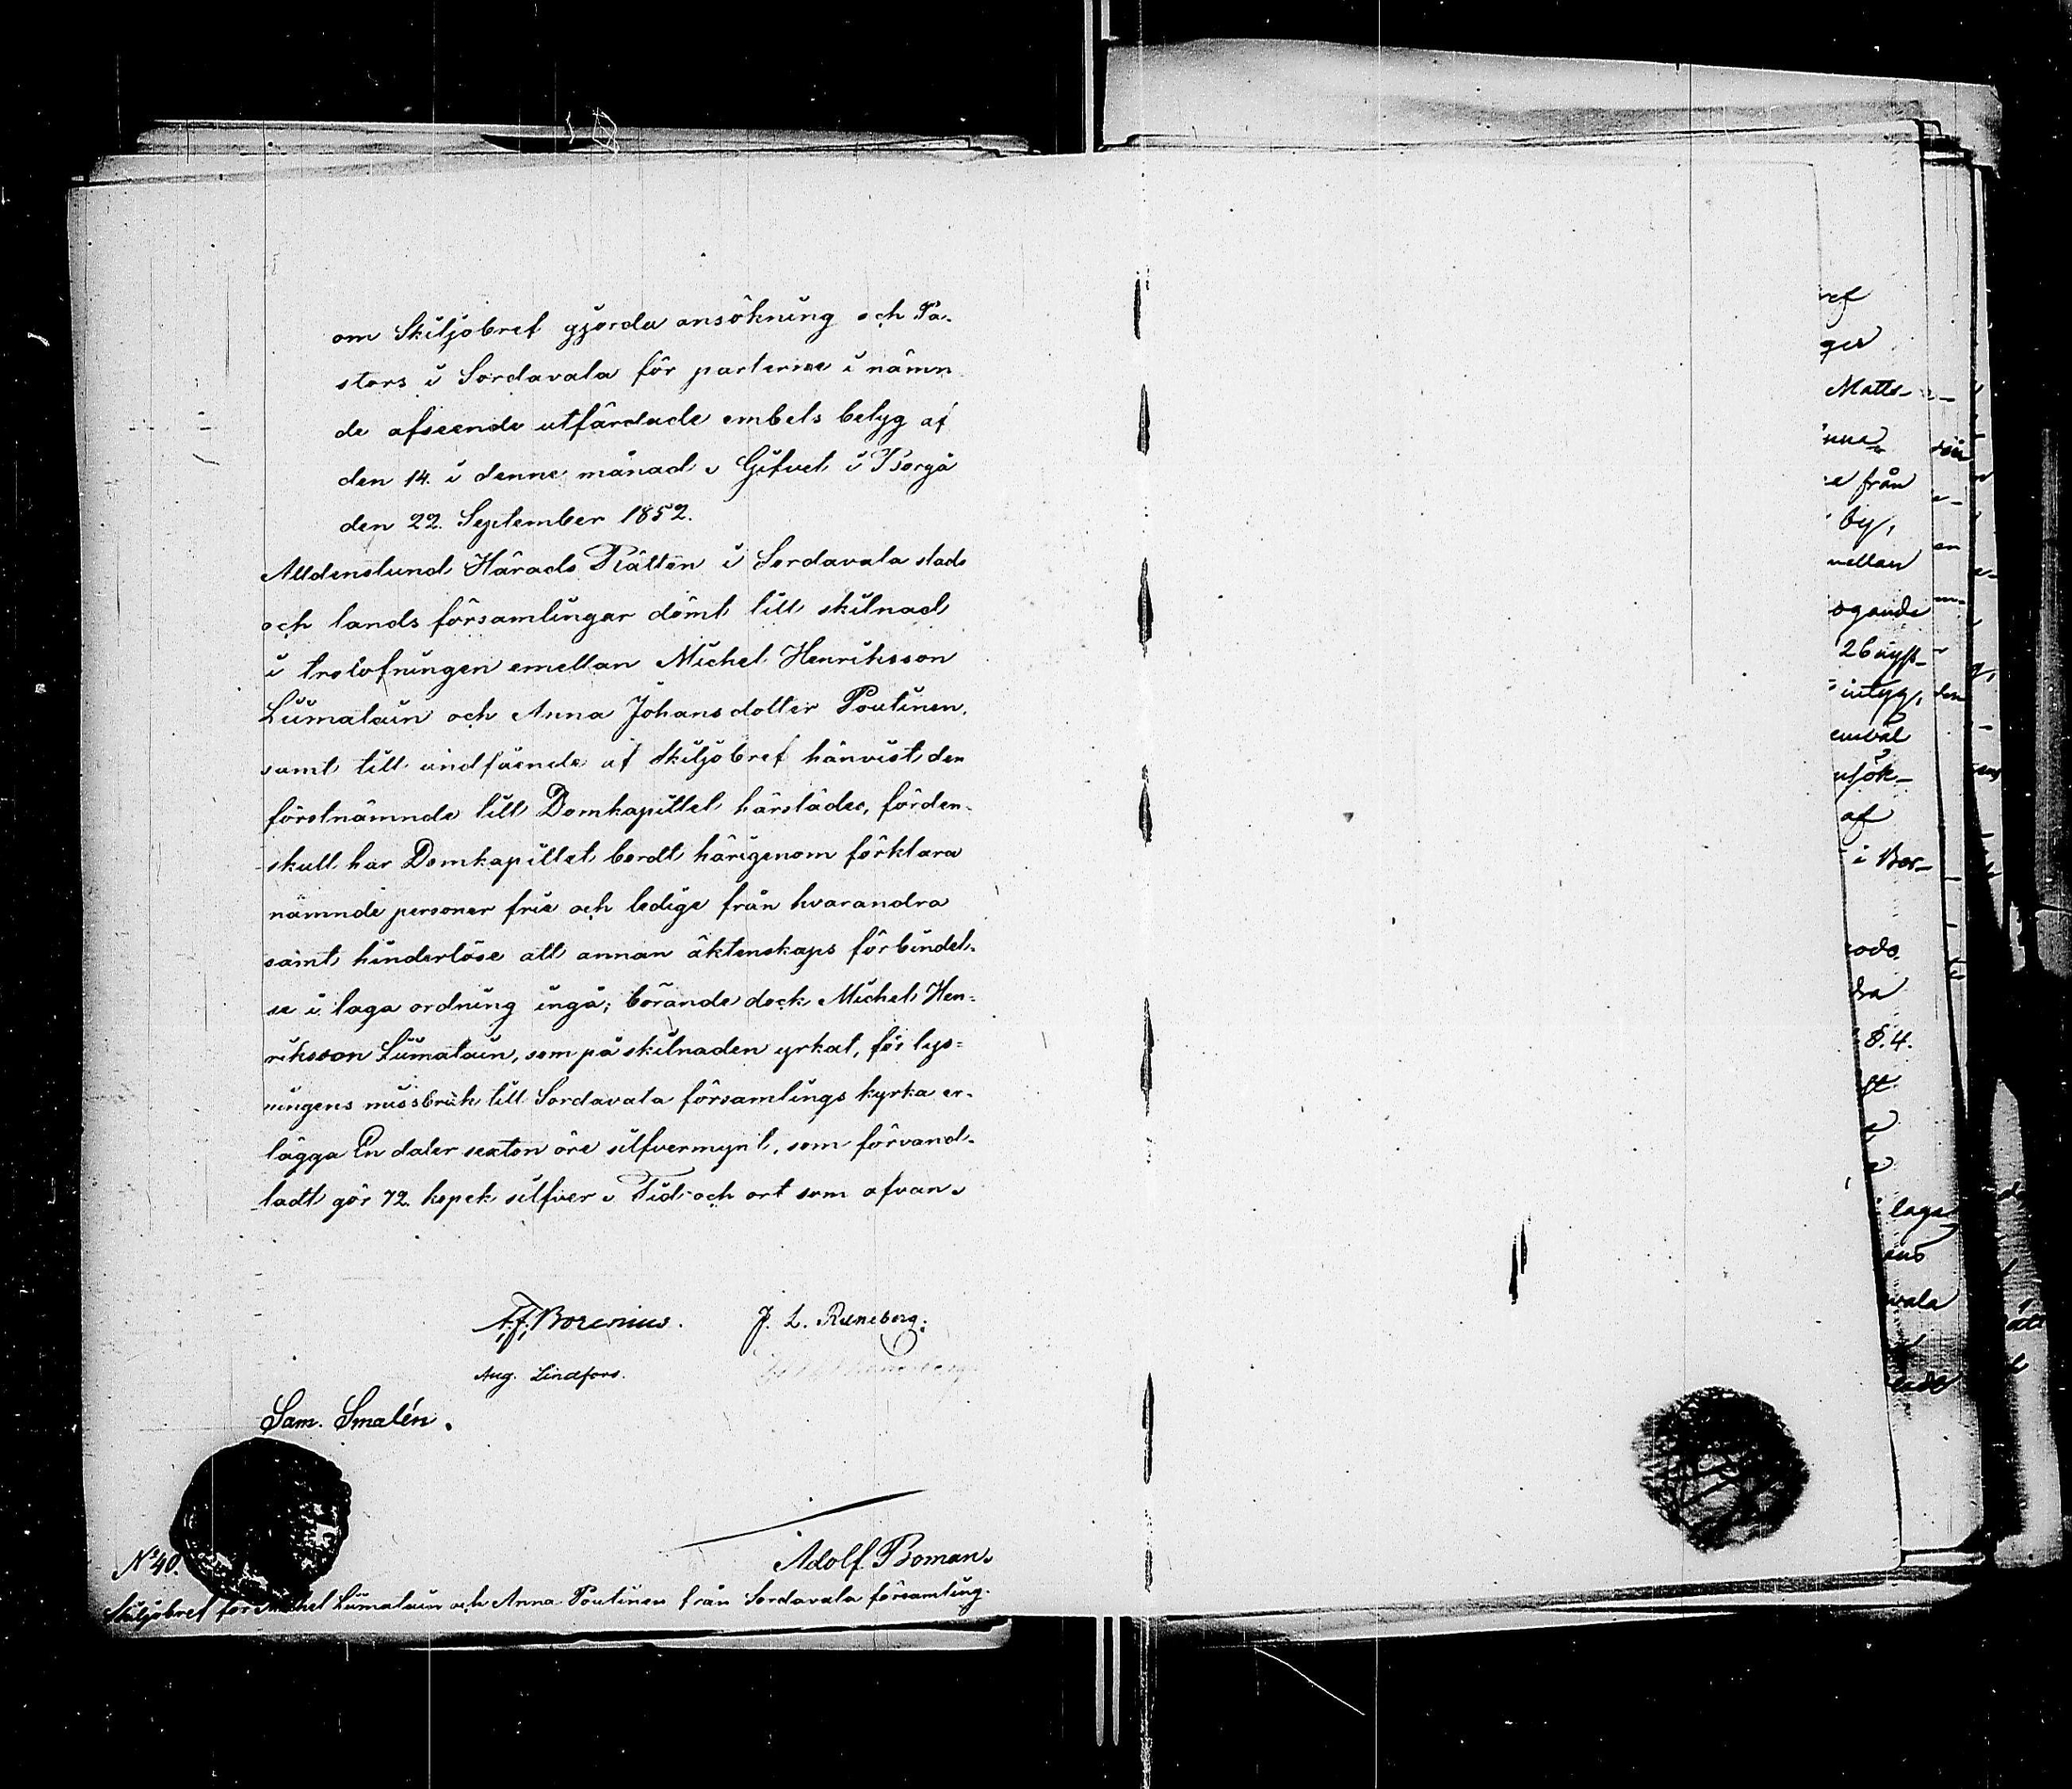 om Skiljobref gjorda ansökning och Pa-
stors i Sordavala för parterne i nämn
de afseende utfärdade embets betyg af
den 14. i denne månad. Gifvet i Borgå
den 22. September 1852.
Alldenstund Härads Rätten i Sordavala stads
och lands församlingar dömt till skilnad
i trolofningen emellan Michel Henriksson
Liimatain och Anna Johansdotter Poutinen,
samt till undfående af Skiljobref hänvist den
förstnämnde till Domkapitlet härstädes, förden-
skull har Domkapitlet bordt härigenom förklara
nämnde personer frie och ledige från hvarandra
samt hinderlöse att annan äktenskaps förbindel-
se i laga ordning ingå; börande dock Michel Hen-
riksson Liimatain, som på skilnaden yrkat, för lys-
ningens missbruk till Sordavala församlings kyrka er-
lägga En daler sexton öre silfvermynt, som förvand-
ladt gör 72. kopek silfver. Tid och ort som ofvan.
A. f. Borenius. J. L. Runeberg.
Aug. Lindfors.
Sam. Smalén.
Adolf Boman.
No 40.
Skiljobref för Michel Liimatain och Anna Poutinen från Sordavala församling.
ref
ger
Matts-
e från
by,
mellan
ogande
intyg,
af
i Bor-
8.4.
laga
vala